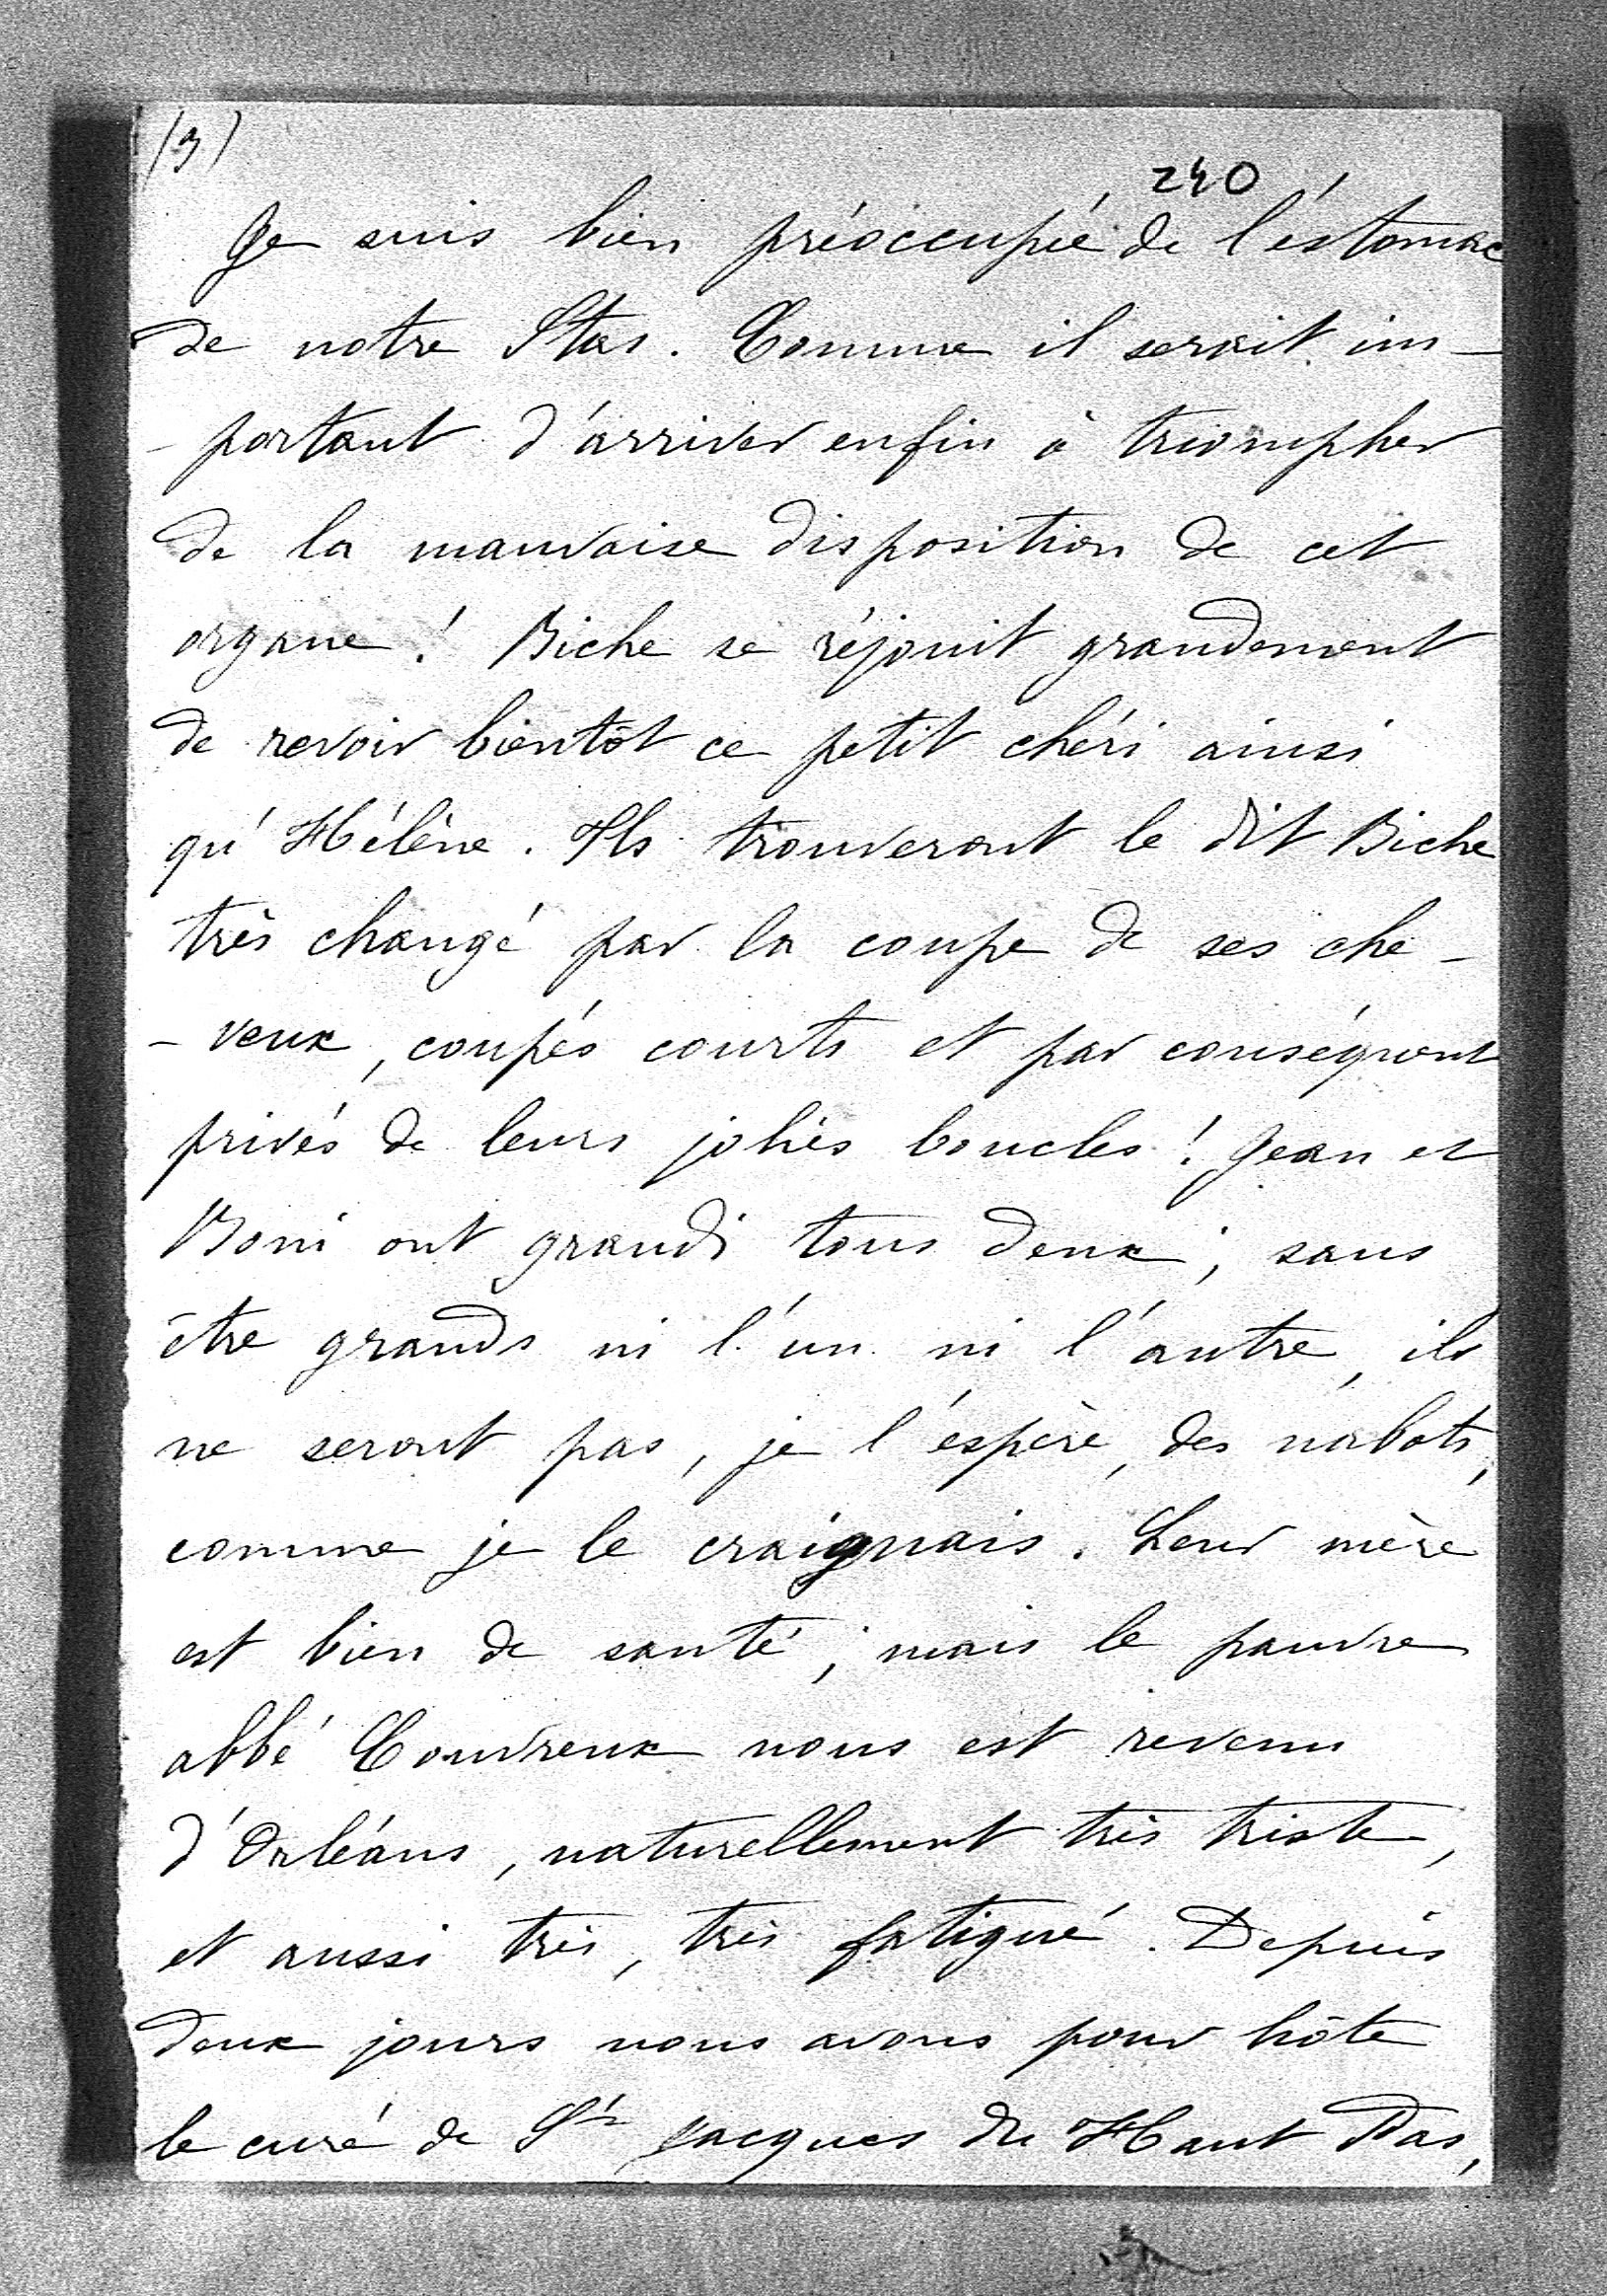 (3)
240
Je suis bien préoccupée de l'éstomac
de notre Stas. Comme il serait im-
-portant d'arriver enfin à triompher
de la mauvaise disposition de cet
organe! Biche se réjouit grandement
de revoir bientôt ce petit chéri ainsi
qu'Hélène. Ils trouveront le dit Biche
très changé par la coupe de ses che-
-veux, coupés courts et par conséquent
privés de leurs jolies boucles! Jean et
Boni ont grandi tous deux; sans
être grands ni l'un ni l'autre, ils
ne seront pas, je l'éspère, des nabots,
comme je le craignais. Leur mère
est bien de santé; mais le pauvre
abbé Couvreux nous est revenu
d'Orléans, naturellement très triste,
et aussi très, très fatigué. Depuis
deux jours nous avons pour hôte
le curé de St Jacques du Haut Pas,